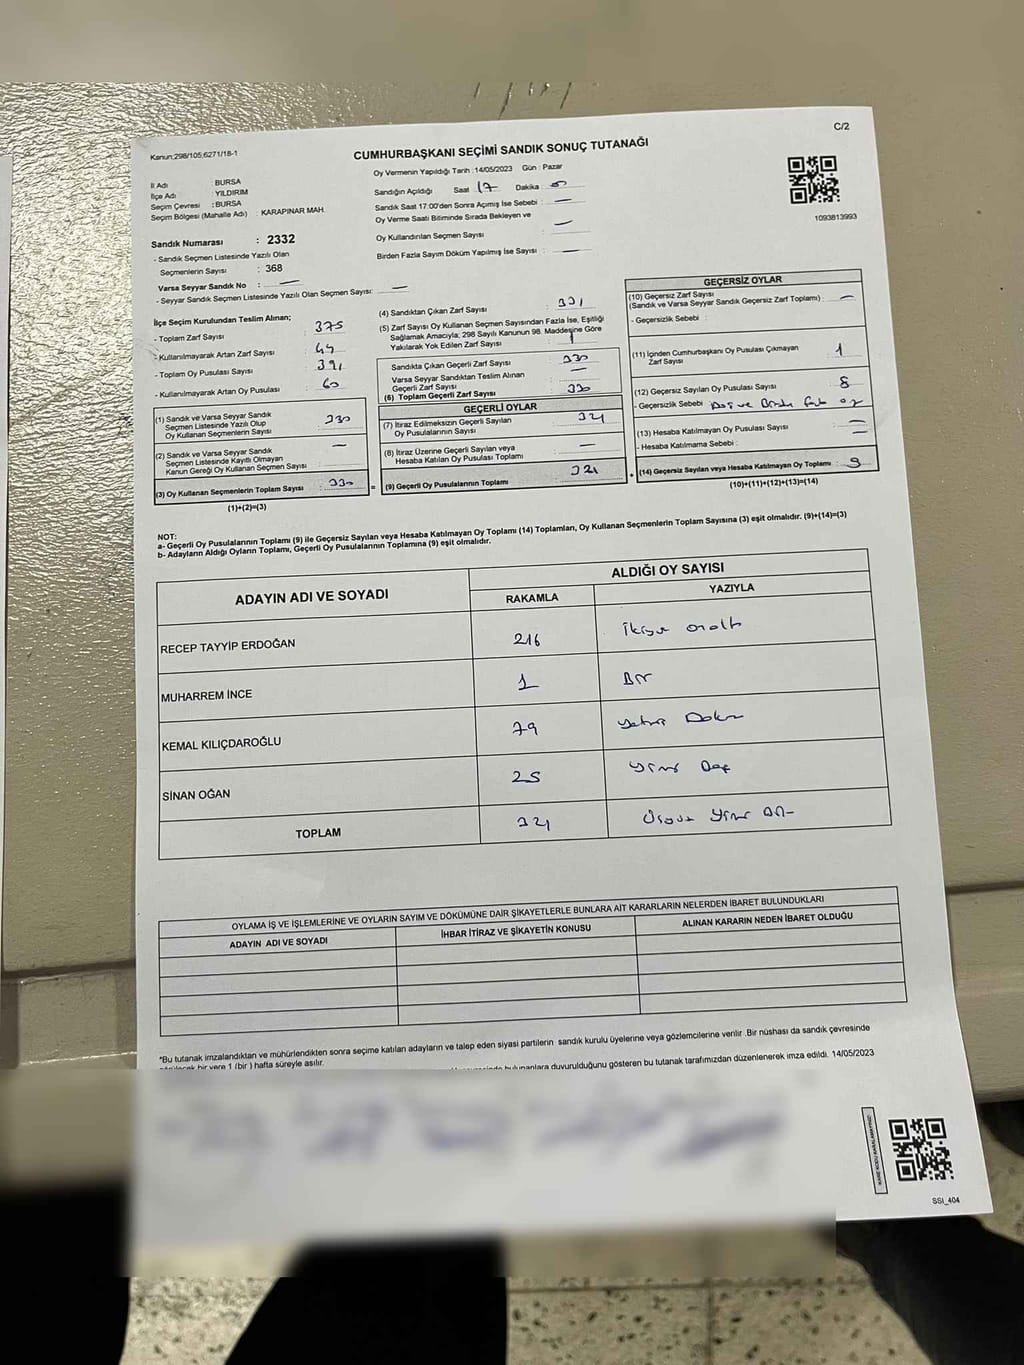 C/2
Kanun:298/105,6271/18-1
CUMHURBAŞKANI SEÇİMİ SANDIK SONUÇ TUTANAĞI
İl Adı : BURSA
İlçe Adı : YILDIRIM
Seçim Çevresi : BURSA
Seçim Bölgesi (Mahalle Adı) : KARAPINAR MAH.
Oy Vermenin Yapıldığı Tarih :14/05/2023 Gün : Pazar
Sandığın Açıldığı Saat 17 Dakika
Sandık Saat 17:00'den Sonra Açımış İse Sebebi : —
Oy Verme Saati Bitiminde Sırada Bekleyen ve
Oy Kullandırılan Seçmen Sayısı : —
Birden Fazla Sayım Döküm Yapılmış İse Sayısı : —
1093813993
Sandık Numarası : 2332
- Sandık Seçmen Listesinde Yazılı Olan
Seçmenlerin Sayısı : 368
Varsa Seyyar Sandık No : —
- Seyyar Sandık Seçmen Listesinde Yazılı Olan Seçmen Sayısı: —
İlçe Seçim Kurulundan Teslim Alınan;
- Toplam Zarf Sayısı : 375
- Kullanılmayarak Artan Zarf Sayısı : 44
- Toplam Oy Pusulası Sayısı : 391
- Kullanılmayarak Artan Oy Pusulası : 60
(1) Sandık ve Varsa Seyyar Sandık
Seçmen Listesinde Yazılı Olup
Oy Kullanan Seçmenlerin Sayısı : 330
(2) Sandık ve Varsa Seyyar Sandık
Seçmen Listesinde Kayıtlı Olmayan
Kanun Gereği Oy Kullanan Seçmen Sayısı : —
(3) Oy Kullanan Seçmenlerin Toplam Sayısı : 330
(1)+(2)=(3)
(4) Sandıktan Çıkan Zarf Sayısı : 331
(5) Zarf Sayısı Oy Kullanan Seçmen Sayısından Fazla İse, Eşitliği
Sağlamak Amacıyla; 298 Sayılı Kanunun 98. Maddesine Göre
Yakılarak Yok Edilen Zarf Sayısı : 1
Sandıkta Çıkan Geçerli Zarf Sayısı : 330
Varsa Seyyar Sandıktan Teslim Alınan
Geçerli Zarf Sayısı : —
(6) Toplam Geçerli Zarf Sayısı : 330
GEÇERLİ OYLAR
(7) İtiraz Edilmeksizin Geçerli Sayılan
Oy Pusulalarının Sayısı : 321
(8) İtiraz Üzerine Geçerli Sayılan veya
Hesaba Katılan Oy Pusulası Toplamı : —
= (9) Geçerli Oy Pusulalarının Toplamı : 321
GEÇERSİZ OYLAR
(10) Geçersiz Zarf Sayısı
(Sandık ve Varsa Seyyar Sandık Geçersiz Zarf Toplamı) : —
- Geçersizlik Sebebi :
(11) İçinden Cumhurbaşkanı Oy Pusulası Çıkmayan
Zarf Sayısı : 1
(12) Geçersiz Sayılan Oy Pusulası Sayısı : 8
- Geçersizlik Sebebi
(13) Hesaba Katılmayan Oy Pusulası Sayısı : —
- Hesaba Katılmama Sebebi : —
+ (14) Geçersiz Sayılan veya Hesaba Katılmayan Oy Toplamı : 9
(10)+(11)+(12)+(13)=(14)
NOT:
a- Geçerli Oy Pusulalarının Toplamı (9) ile Geçersiz Sayılan veya Hesaba Katılmayan Oy Toplamı (14) Toplamları, Oy Kullanan Seçmenlerin Toplam Sayısına (3) eşit olmalıdır. (9)+(14)=(3)
b- Adayların Aldığı Oyların Toplamı, Geçerli Oy Pusulalarının Toplamına (9) eşit olmalıdır.
ADAYIN ADI VE SOYADI ALDIĞI OY SAYISI
RAKAMLA YAZIYLA
RECEP TAYYİP ERDOĞAN 216 İkiyüz onaltı
MUHARREM İNCE 1 Bir
KEMAL KILIÇDAROĞLU 79 yetmiş Dokuz
SİNAN OĞAN 25 yirmi Beş
TOPLAM 321 Üçyüz yirmi Bir
OYLAMA İŞ VE İŞLEMLERİNE VE OYLARIN SAYIM VE DÖKÜMÜNE DAİR ŞİKAYETLERLE BUNLARA AİT KARARLARIN NELERDEN İBARET BULUNDUKLARI
ADAYIN ADI VE SOYADI İHBAR İTİRAZ VE ŞİKAYETİN KONUSU ALINAN KARARIN NEDEN İBARET OLDUĞU
*Bu tutanak imzalandıktan ve mühürlendikten sonra seçime katılan adayların ve talep eden siyasi partilerin sandık kurulu üyelerine veya gözlemcilerine verilir .Bir nüshası da sandık çevresinde
bir yere 1 (bir ) hafta süreyle asılır.
duyurulduğunu gösteren bu tutanak tarafımızdan düzenlenerek imza edildi. 14/05/2023
KARE KODU KARALAMAYINIZ!
SSI_404